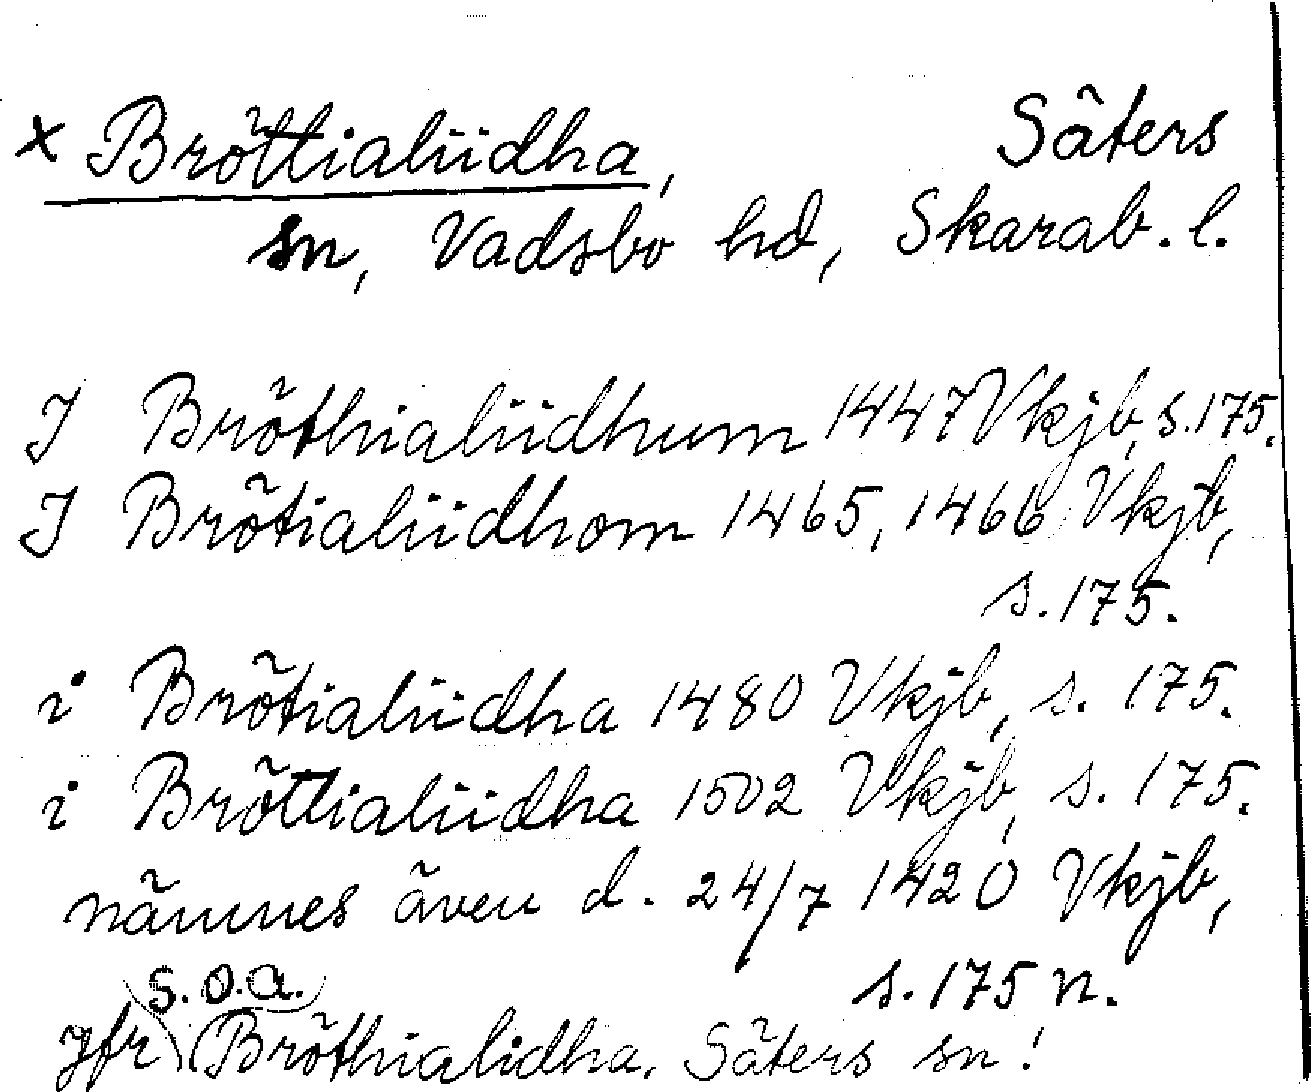 x Bröttialiidha, Säters
sn, Vadsbo hd, Skarab. l.
J Bröthialiidhum 1447 Vkjb, s. 175.
J Brötialiidhom 1465, 1466 Vkjb,
s. 175.
i Brötialiidha 1480 Vkjb, s. 175.
i Bröttialiidha 1502 Vkjb, s. 175.
nämnes även d. 24/7 1420 Vkjb,
s. 175 n.
(s.o.a.)
jfr (Bröthialidha, Säters sn!